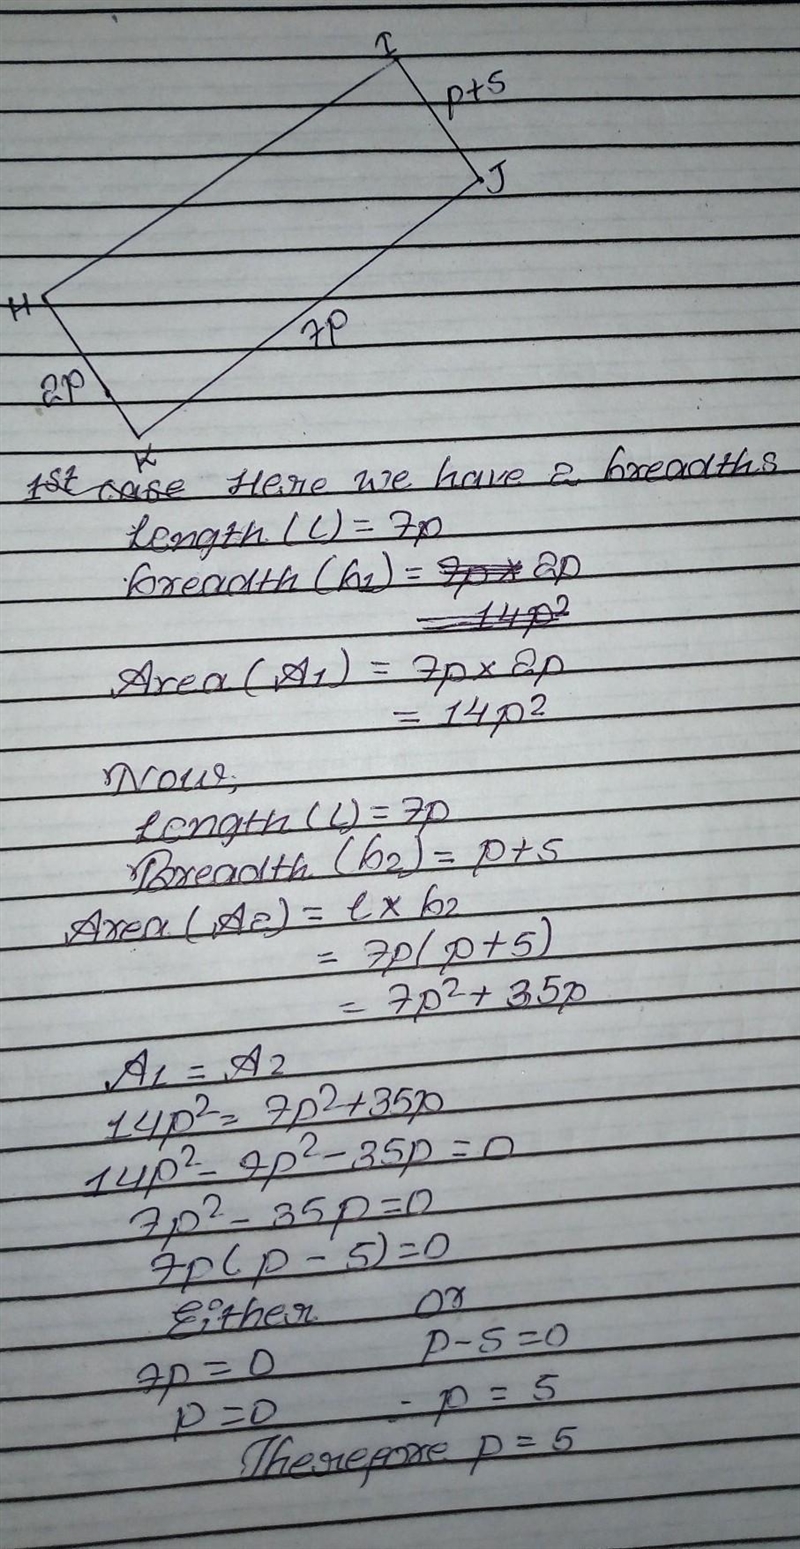 I
p+5
J
H
7p
2p
K
1st case Here we have 2 breadths
Length (l) = 7p
breadth (b1) = 7p × 2p
= 14p²
Area (A1) = 7p × 2p
= 14p²
Now,
Length (l) = 7p
Breadth (b2) = p+5
Area (A2) = l × b2
= 7p(p+5)
= 7p² + 35p
A1 = A2
14p² = 7p²+35p
14p² - 7p² - 35p = 0
7p² - 35p = 0
7p(p - 5) = 0
Either or
7p = 0 p-5=0
p = 0 - p = 5
Therefore p = 5